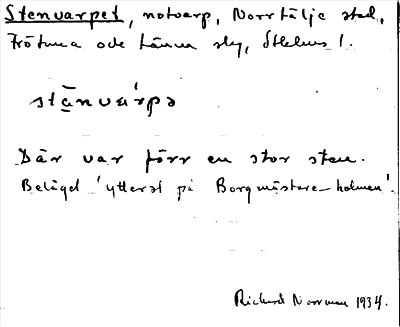 Stenvarpet, notvarp, Norrtälje stad,
Frötuna och Länna skg, Sthlms l.
stänvárpə
Där var förr en stor sten.
Beläget 'ytterst på Borgmästare-holmen'.
Richard Norrman 1934.